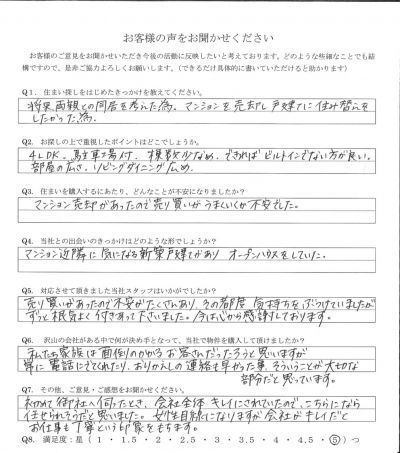 お客様の声をお聞かせください
お客様のご意見をお聞かせいただき今後の活動に反映したいと考えております。どのような些細なことでも結
構ですので、是非ご協力よろしくお願いします。(できるだけ具体的に書いていただけると助かります)
Q1. 住まい探しをはじめたきっかけを教えてください。
将来両親との同居を考えた為、マンションを売却し戸建てに住み替えを
したかった為。
Q2. お探しの上で重視したポイントはどこでしょうか。
4LDK、駐車場付、棟数少なめ、できればビルトインでない方が良い。
部屋の広さ、リビングダイニング広め
Q3. 住まいを購入するにあたり、どんなことが不安になりましたか?
マンション売却があったので売り買いがうまくいくか不安でした。
Q4. 当社との出会いのきっかけはどのような形でしょうか?
マンション近隣に気になる新築戸建てがあり オープンハウスをしていた。
Q5. 対応させて頂きました当社スタッフはいかがでしたか?
売り買いがあったので不安がたくさんあり、その都度 気持ちをぶつけていましたが
ずっと根気よく付きあって下さいました。今は心から感謝しております。
Q6. 沢山の会社がある中で何が決め手となって、当社で物件を購入して頂けましたか?
私たち家族は面倒のかかるお客さんだったろうと思いますが
常に電話にでてくれたり、おりかえしの連絡も早かった事、そういうことが大切な
部分だと思っています。
Q7. その他、ご意見・ご感想をお聞かせください。
初めて御社へ伺ったとき、会社全体キレイにされていたので、こちらになら
任せられそうだと思いました。女性目線になりますが会社がキレイだと
お仕事も丁寧という印象をもちます。
Q8. 満足度:星(1・1.5・2・2.5・3・3.5・4・4.5・⑤)つ